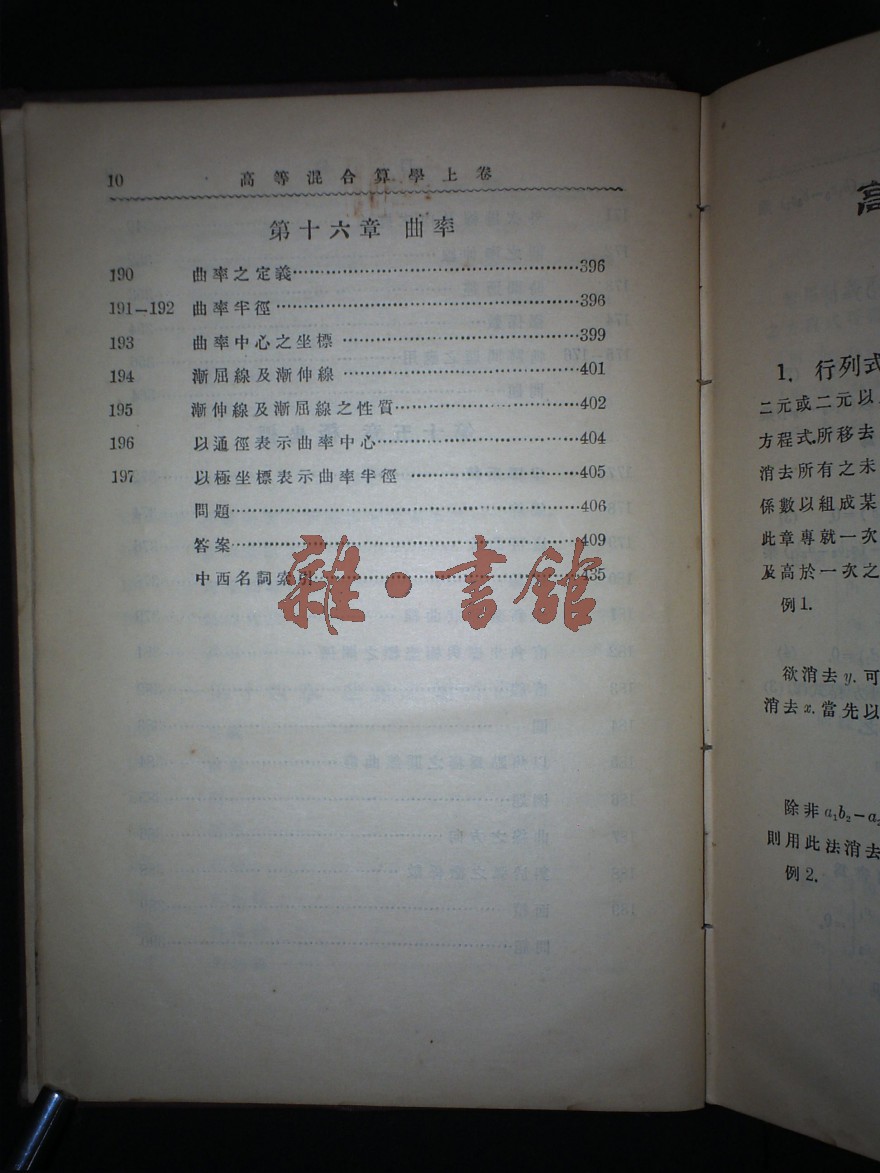 10 高等混合算學上卷
第十六章 曲率
190 曲率之定義……396
191—192 曲率半徑……396
193 曲率中心之坐標……399
194 漸屈線及漸伸線……401
195 漸伸線及漸屈線之性質……402
196 以通徑表示曲率中心……404
197 以極坐標表示曲率半徑……405
問題……406
答案……409
中西名詞索引……435
雜·書館
高
1. 行列式
二元或二元以
方程式.所移去
消去所有之未
係數以組成某
此章專就一次
及高於一次之
例1.
欲消去 y. 可
消去 x. 當先以
除非 a₁b₂−a₂
則用此法消去
例2.